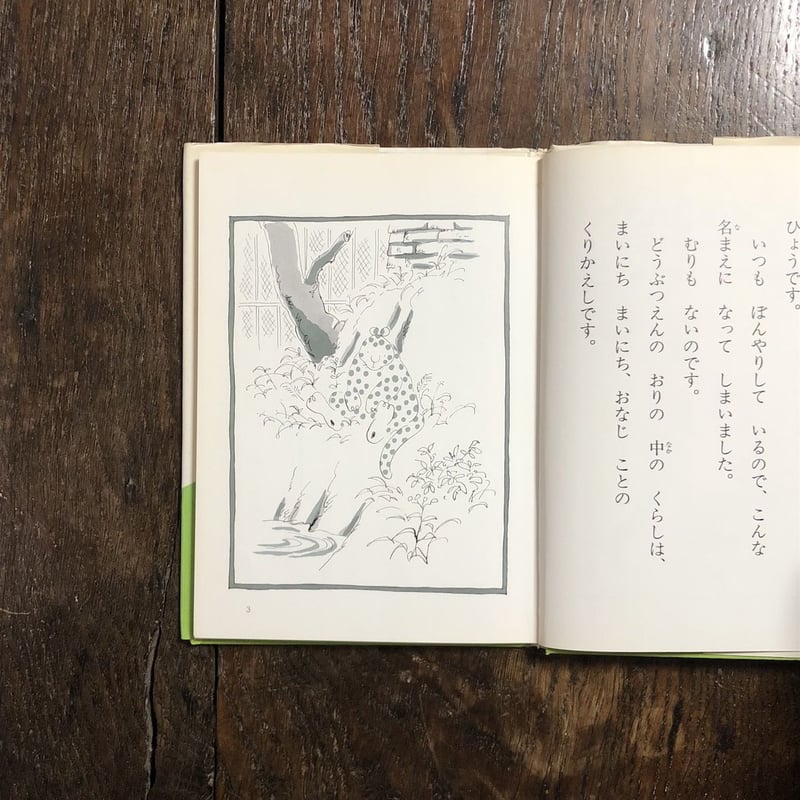 ひょうです。
いつも ぼんやりして いるので、こんな
名まえに なって しまいました。
むりも ないのです。
どうぶつえんの おりの 中の くらしは、
まいにち まいにち、おなじ ことの
くりかえしです。
3